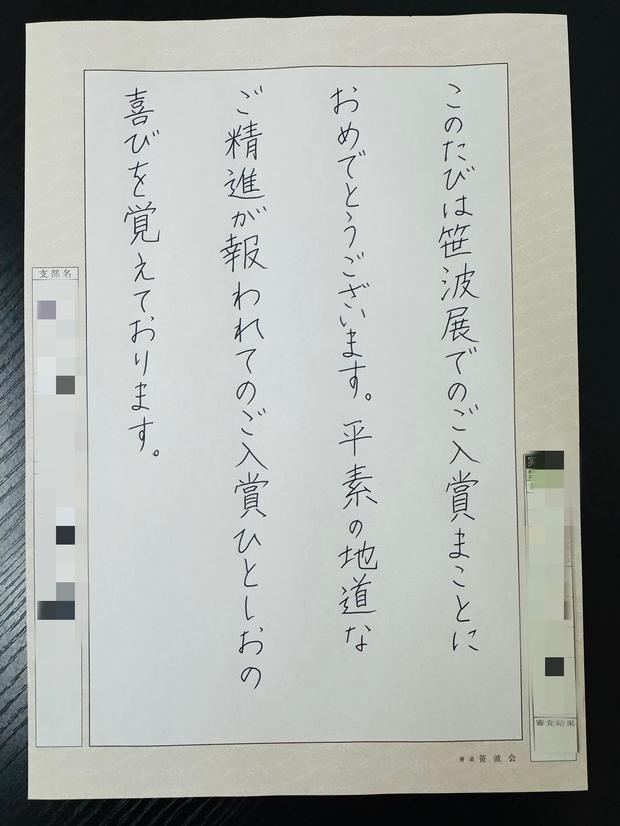 このたびは笹波展でのご入賞まことに
おめでとうございます。平素の地道な
ご精進が報われてのご入賞ひとしおの
喜びを覚えております。
支部名
審査結果
書道 笹波会